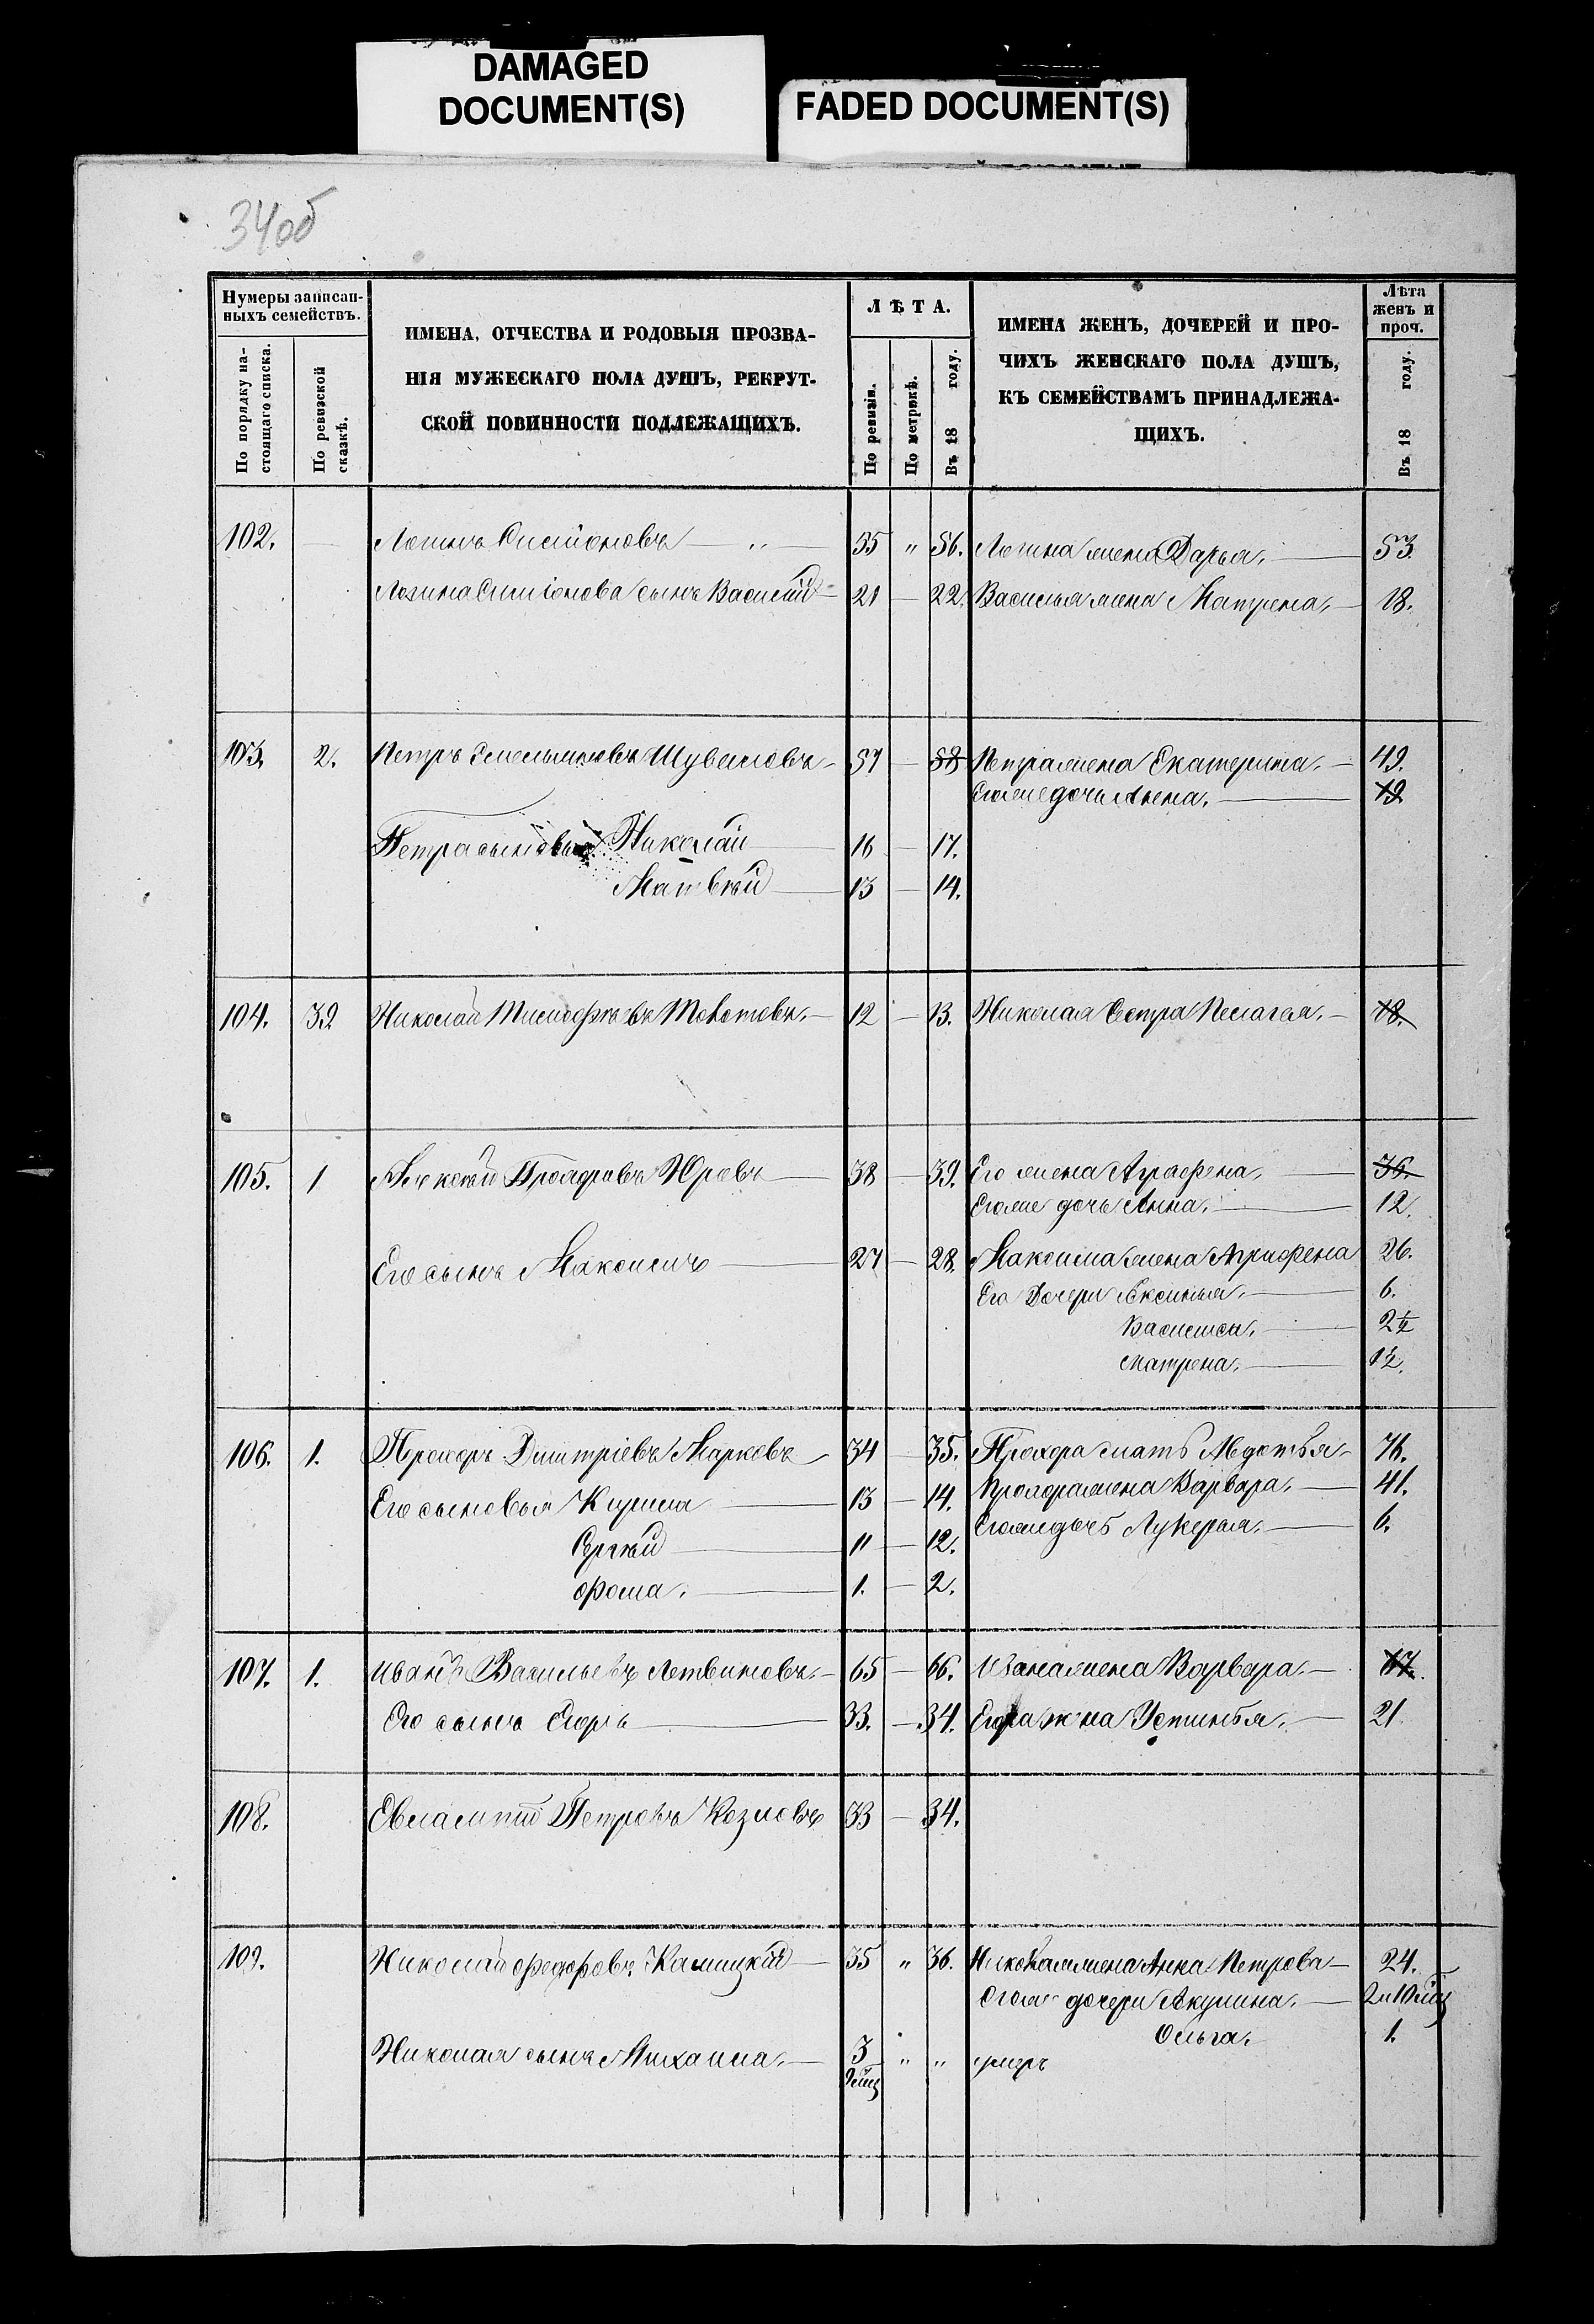 DAMAGED
DOCUMENT(S)
FADED DOCUMENT(S)
34об
Нумеры записан-
ныхъ семействъ.
По порядку на-
стоящаго списка.
По ревизской
сказкѣ.
ИМЕНА, ОТЧЕСТВА И РОДОВЫЯ ПРОЗВА-
НІЯ МУЖЕСКАГО ПОЛА ДУШЪ, РЕКРУТ-
СКОЙ ПОВИННОСТИ ПОДЛЕЖАЩИХЪ.
ЛѢТА.
По ревизіи.
По метрикѣ.
Въ 18 году.
ИМЕНА ЖЕНЪ, ДОЧЕРЕЙ И ПРО-
ЧИХЪ ЖЕНСКАГО ПОЛА ДУШЪ,
КЪ СЕМЕЙСТВАМЪ ПРИНАДЛЕЖА-
ЩИХЪ.
Лѣта
женъ и
проч.
Въ 18 году.
102. — Логинъ Симіоновъ — „ — 55 „ 56. Логина жена Дарья. — 53.
Логина Симіонова сынъ Василій — 21 — 22. Василья жена Матрена. — 18.
103. 2. Петръ Емельяновъ Шуваловъ — 57 — 58 Петра жена Екатерина. — 49.
Его же дочь Алена. — 19
Петра сыновья Николай — 16 — 17.
Матвѣй — 13 — 14.
104. 32 Николай — 12 — 13. Николая Сестра Пелагея. — 18.
105. 1 Алексѣй Юровъ — 38 — 39. Его жена Аграфена. — 36.
Его же дочь Анна. — 12.
Его сынъ Максимъ — 27 — 28. Максима жена Аграфена 26.
Его Дочери Аксинья. — 6.
Василиса. — 2
Матрена. — 12.
106. 1. Прохоръ Дмитріевъ Марковъ — 34 — 35. Прохора мать Авдотья — 76.
Его сыновья Кирила — 13 — 14. Прохора жена Варвара. — 41.
Сергѣй — 11 — 12. Его же дочь Лукерья. — 6.
Фома. — 1. — 2.
107. 1. Иванъ Васильевъ Летвиновъ. — 65 — 66. Ивана жена Варвара. — 67.
Его сынъ Егоръ — 33. — 34. Егора жена Устинья. — 21
108. Евлампій Петровъ Козловъ 33 — 34.
109. Николай Федоровъ — 35 „ 36. Николая жена Анна Петрова — 24.
Его же дочери Акулина. — 2 и 10 мц
Ольга. 1.
Николая сынъ Михаила. — 3 „ „ умеръ